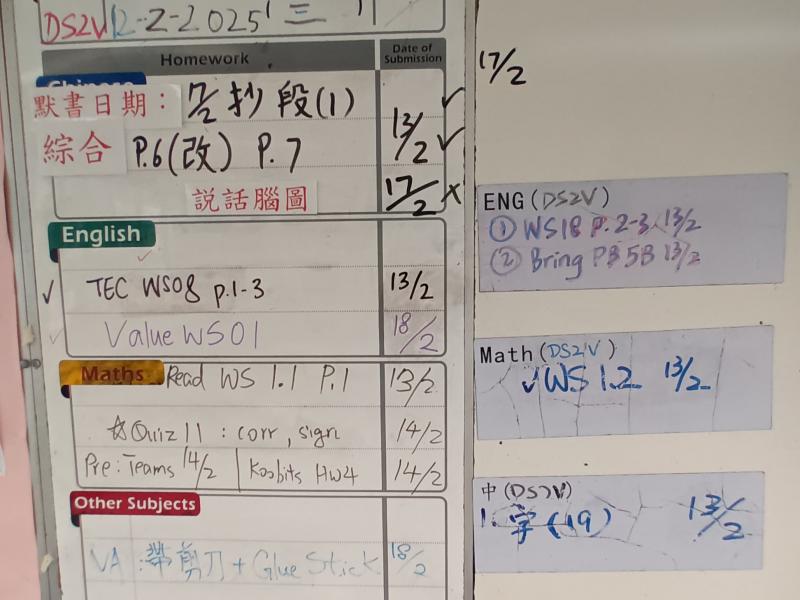 DS2V 12-2-2025 三
Homework
Date of Submission
Chinese
默書日期： 17/2 抄段(1)
17/2
綜合 P.6(改) P.7 13/2
說話腦圖 17/2
English
TEC WS08 p.1-3 13/2
Value WS01 18/2
Maths Read WS 1.1 P.1 13/2
☆Quiz 11 : corr, sign 14/2
Pre: Teams 14/2 | Koobits HW4 14/2
Other Subjects
VA : 帶剪刀 + Glue Stick 18/2
ENG (DS2V)
① WS18 P.2-3 13/2
② Bring PB 5B 13/2
Math (DS2V)
✓WS 1.2 13/2
中 (DS2V)
1. 字(19) 13/2